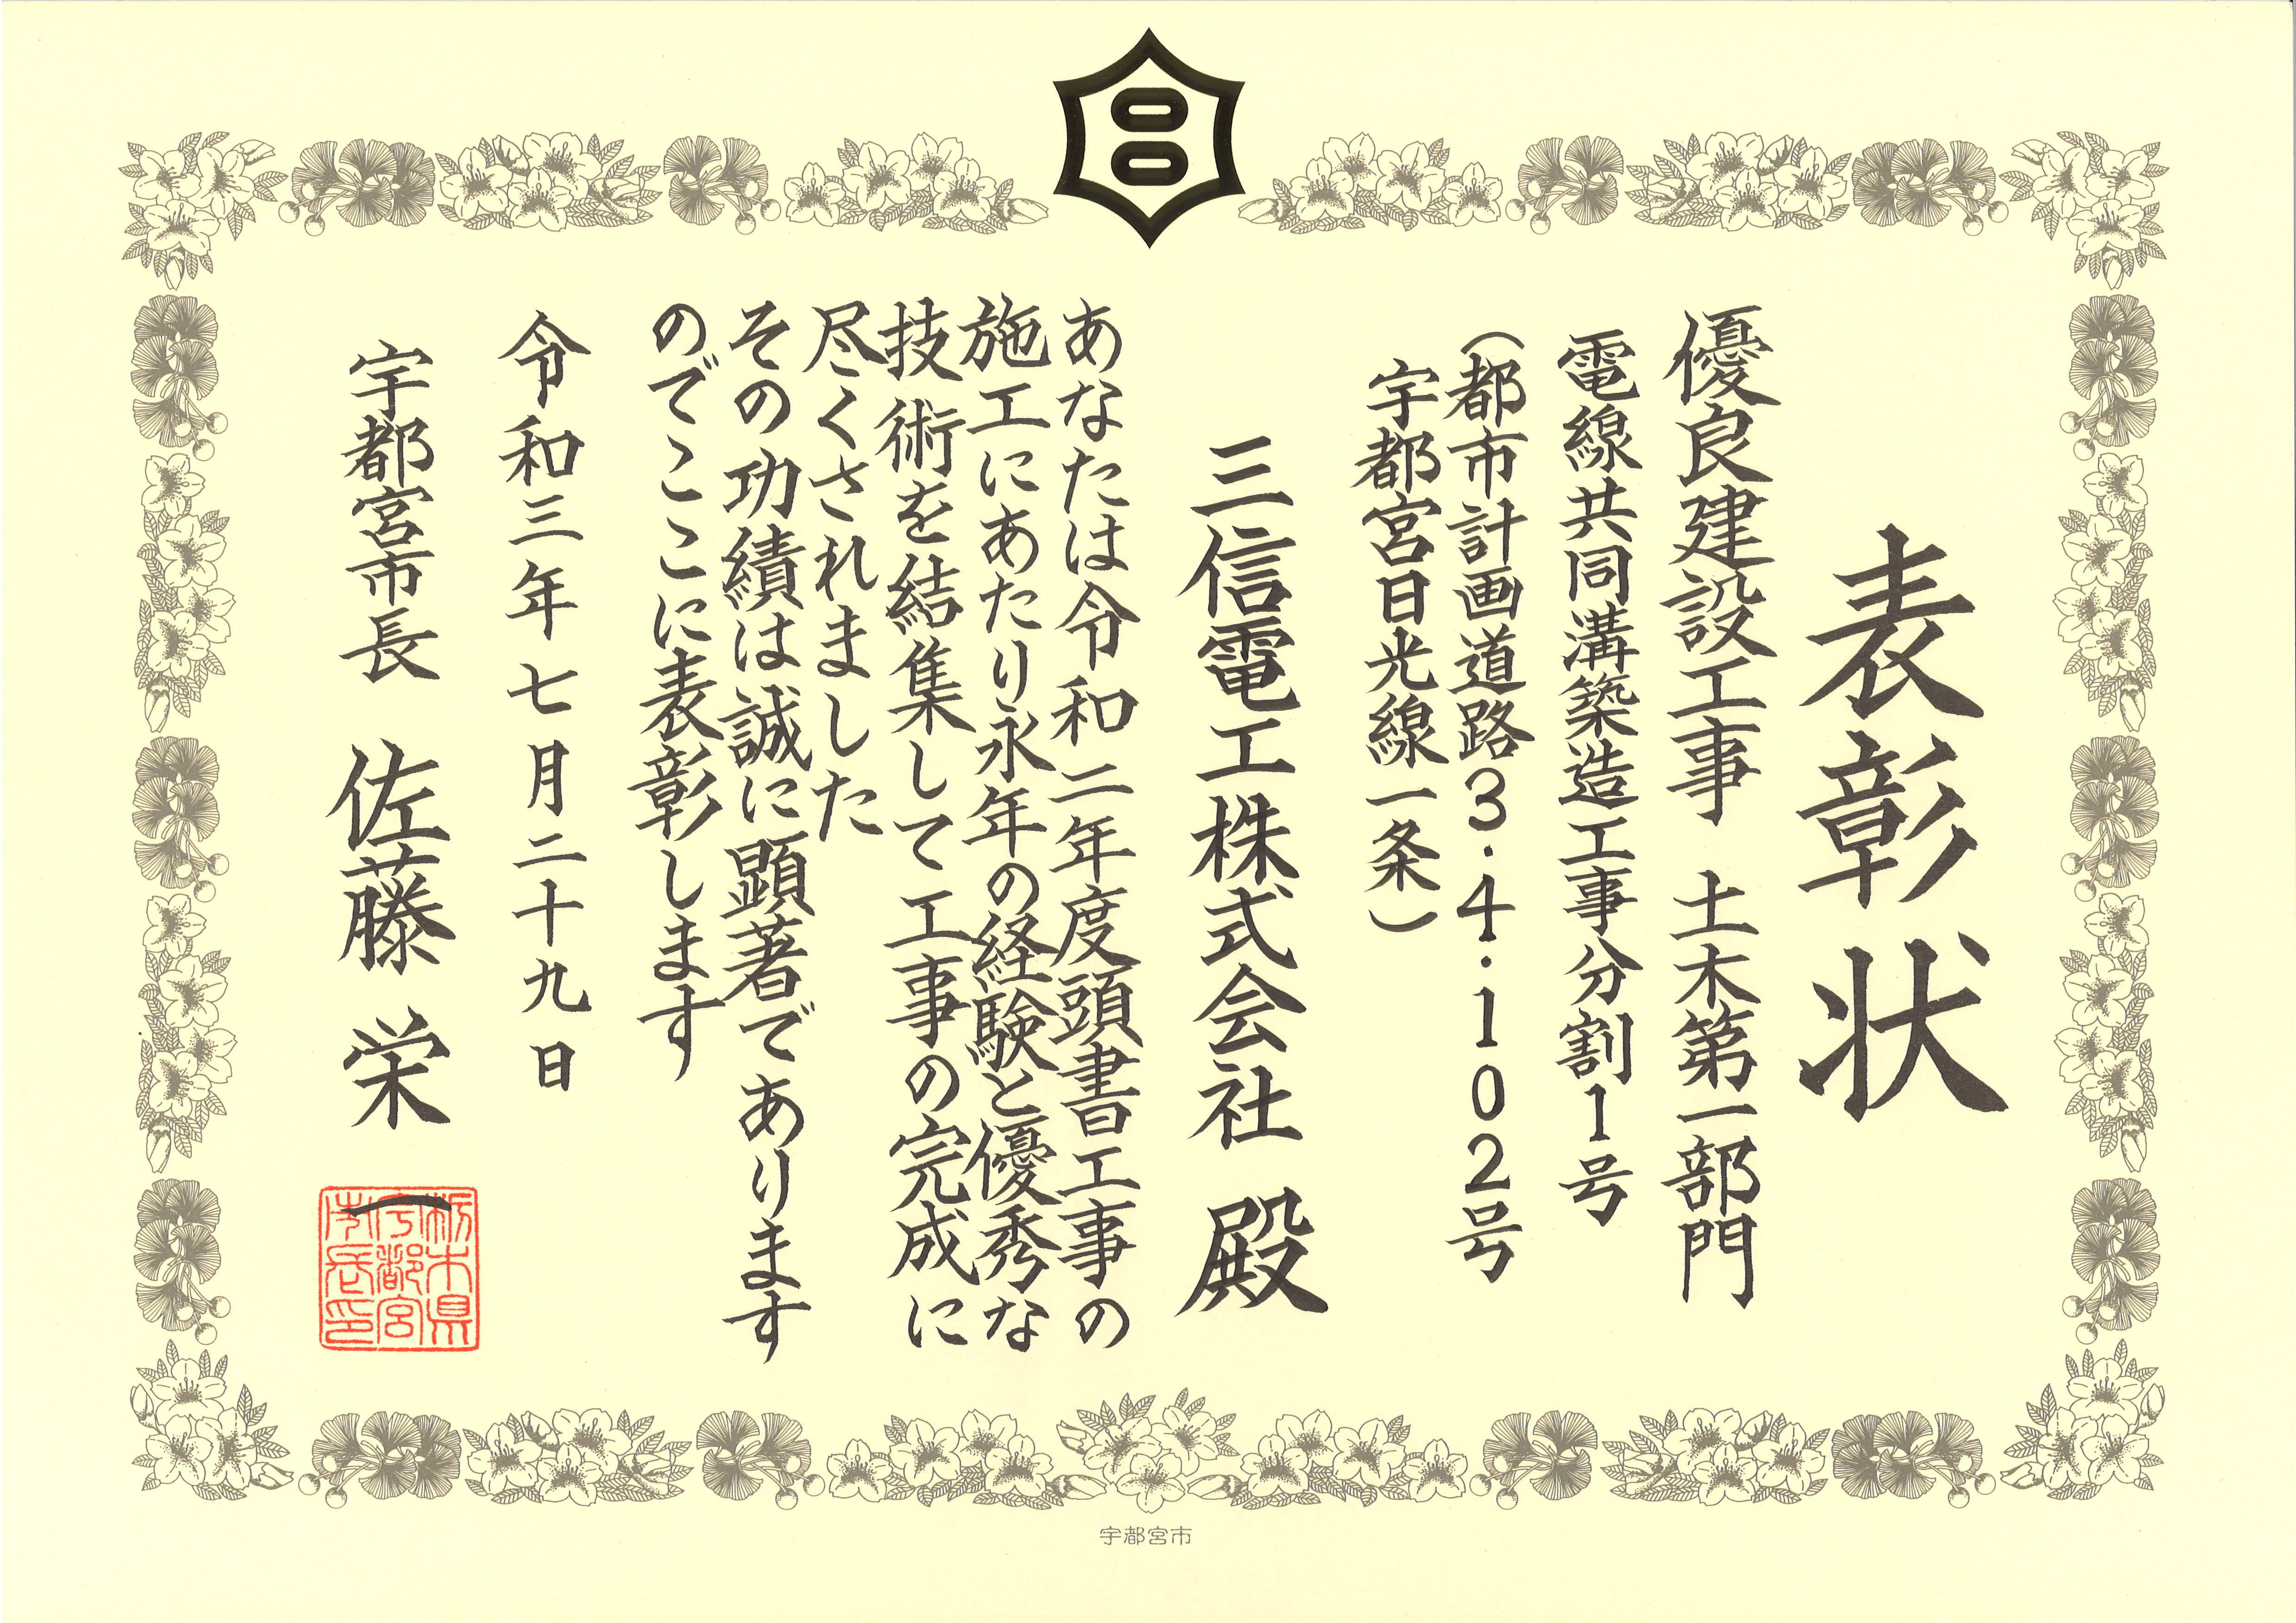 表彰状
優良建設工事 土木第一部門
電線共同溝築造工事分割1号
(都市計画道路3・4・102号
宇都宮日光線一条)
三信電工株式会社 殿
あなたは令和二年度頭書工事の
施工にあたり永年の経験と優秀な
技術を結集して工事の完成に
尽くされました
その功績は誠に顕著であります
のでここに表彰します
令和三年七月二十九日
宇都宮市長 佐藤栄一
栃木県
宇都宮
市長印
宇都宮市